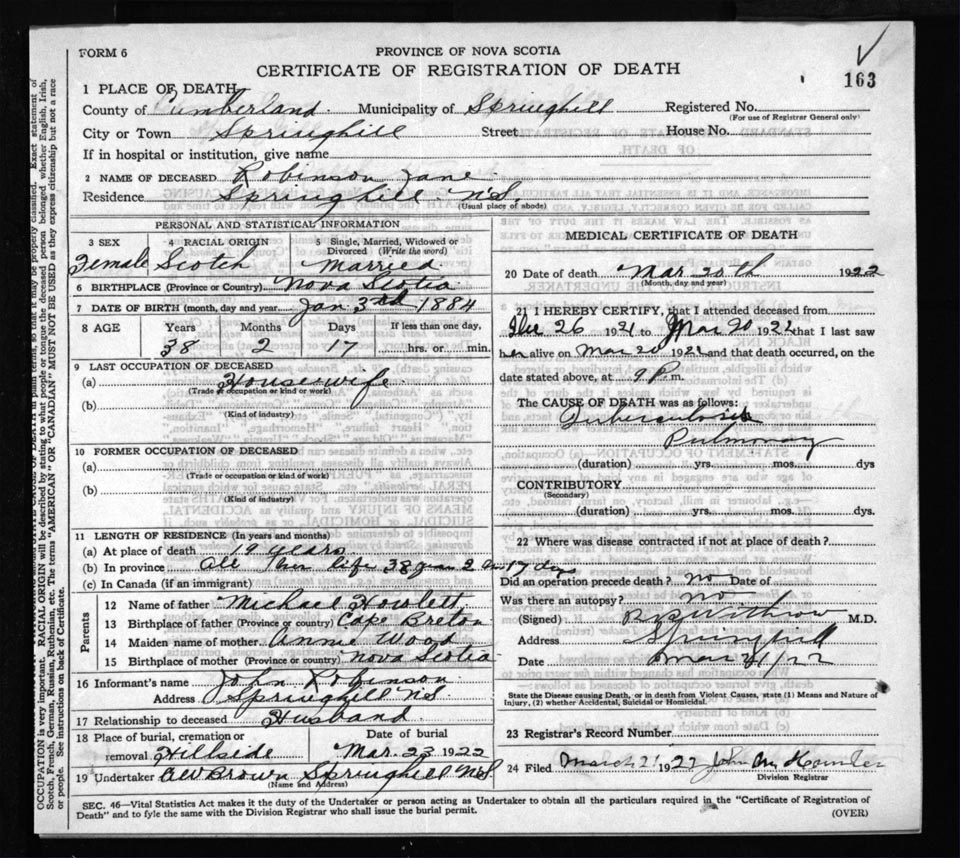 FORM 6
PROVINCE OF NOVA SCOTIA
CERTIFICATE OF REGISTRATION OF DEATH
163
1 PLACE OF DEATH
County of Cumberland Municipality of Springhill Registered No.
(For use of Registrar General only)
City or Town Springhill Street House No.
If in hospital or institution, give name
2 NAME OF DECEASED Robinson Jane
Residence Springhill N.S.
(Usual place of abode)
PERSONAL AND STATISTICAL INFORMATION
3 SEX 4 RACIAL ORIGIN 5 Single, Married, Widowed or Divorced (Write the word)
Female Scotch Married
6 BIRTHPLACE (Province or Country) Nova Scotia
7 DATE OF BIRTH (month, day and year) Jan 3rd 1884
8 AGE Years Months Days If less than one day,
38 2 17 hrs. or min.
9 LAST OCCUPATION OF DECEASED
(a) Housewife
(Trade or occupation or kind of work)
(b)
(Kind of industry)
10 FORMER OCCUPATION OF DECEASED
(a)
(Trade or occupation or kind of work)
(b)
(Kind of industry)
11 LENGTH OF RESIDENCE (In years and months)
(a) At place of death 19 years
(b) In province all her life 38 years 2 m 17 dys
(c) In Canada (if an immigrant)
Parents
12 Name of father Michael Howlett
13 Birthplace of father (Province or country) Cape Breton
14 Maiden name of mother Annie Wood
15 Birthplace of mother (Province or country) Nova Scotia
16 Informant's name John Robinson
Address Springhill N.S
17 Relationship to deceased Husband
18 Place of burial, cremation or removal Date of burial
Hillside Mar. 23 1922
19 Undertaker A W Brown Springhill N.S
(Name and Address)
MEDICAL CERTIFICATE OF DEATH
20 Date of death Mar 20th 1922
(Month, day and year)
21 I HEREBY CERTIFY, that I attended deceased from
26 1921 to Mar 20 1922 that I last saw
her alive on Mar 20 1922 and that death occurred, on the
date stated above, at 9 P.m.
The CAUSE OF DEATH was as follows:
Tuberculosis
Pulmonary
(duration) yrs. mos. dys
CONTRIBUTORY
(Secondary)
(duration) yrs. mos. dys.
22 Where was disease contracted if not at place of death?
Did an operation precede death? no Date of
Was there an autopsy? no
(Signed) M.D.
Address Springhill
Date Mar 21/22
State the Disease causing Death, or in death from Violent Causes, state (1) Means and Nature of
Injury, (2) whether Accidental, Suicidal or Homicidal.
23 Registrar's Record Number
24 Filed March 21 1922 John
Division Registrar
SEC. 46—Vital Statistics Act makes it the duty of the Undertaker or person acting as Undertaker to obtain all the particulars required in the "Certificate of Registration of
Death" and to fyle the same with the Division Registrar who shall issue the burial permit.
(OVER)
OCCUPATION is very important. RACIAL ORIGIN will be described by stating to what people or tongue the deceased person belonged whether English, Irish,
Scotch, French, German, Russian, Ruthenian, etc. The terms "AMERICAN" OR "CANADIAN" MUST NOT BE USED as they express citizenship but not a race
or people. See instructions on back of Certificate.